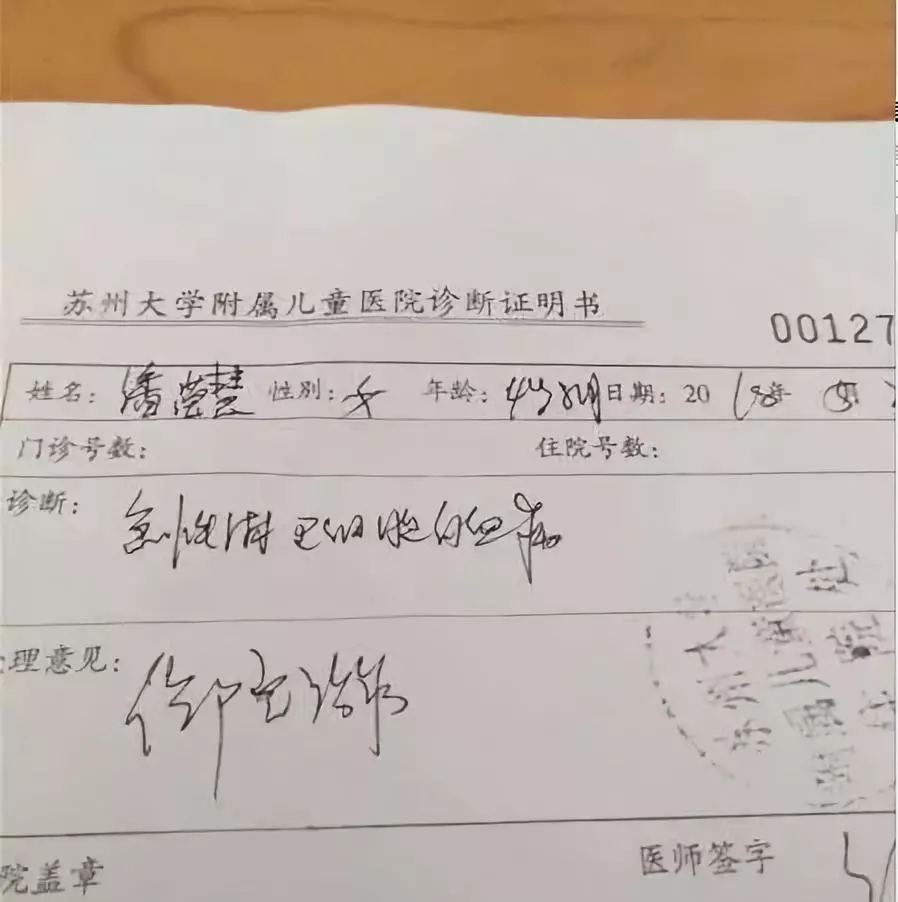 苏州大学附属儿童医院诊断证明书
00127
姓名: 潘莹慧 性别: 女 年龄: 4岁8月 日期: 20 18年
门诊号数: 住院号数:
诊断: 急性淋巴细胞白血病
理意见: 住院治疗
院盖章 医师签字